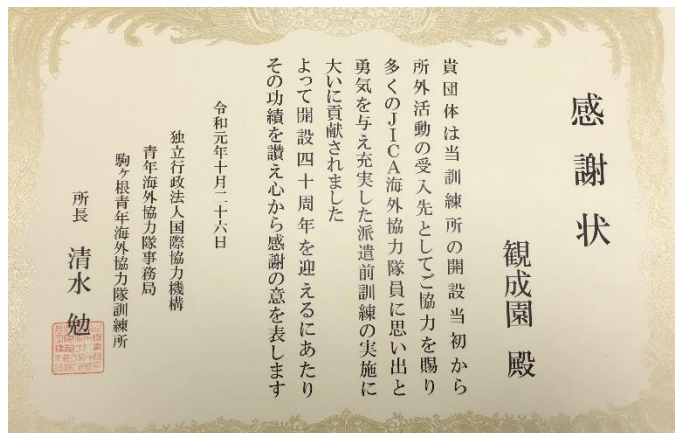 感謝状
観成園 殿
貴団体は当訓練所の開設当初から
所外活動の受入先としてご協力を賜り
多くのJICA海外協力隊員に思い出と
勇気を与え充実した派遣前訓練の実施に
大いに貢献されました
よって開設四十周年を迎えるにあたり
その功績を讃え心から感謝の意を表します
令和元年十月二十六日
独立行政法人国際協力機構
青年海外協力隊事務局
駒ヶ根青年海外協力隊訓練所
所長 清水 勉